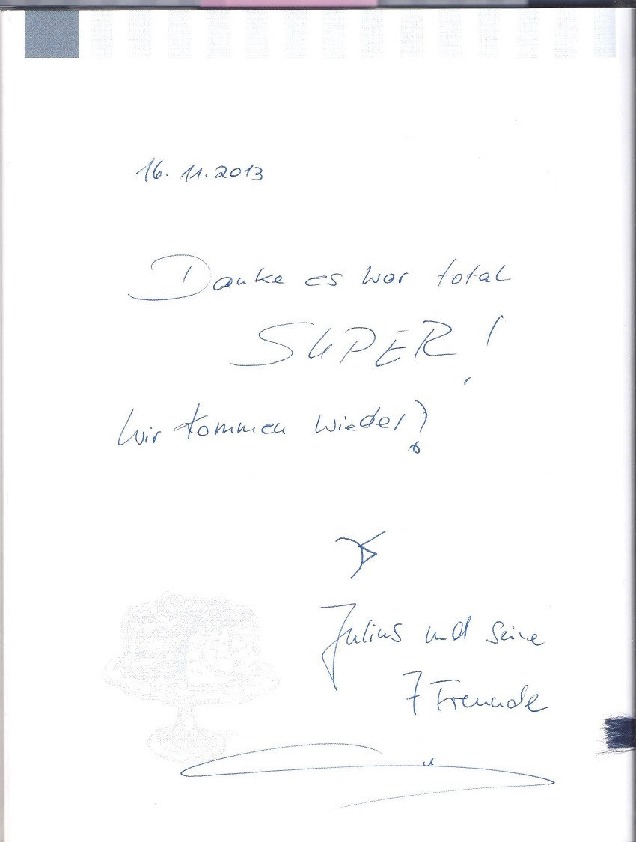 16.11.2013
Danke es war total
SUPER!
Wir kommen wieder!
Julius und seine
7 Freunde